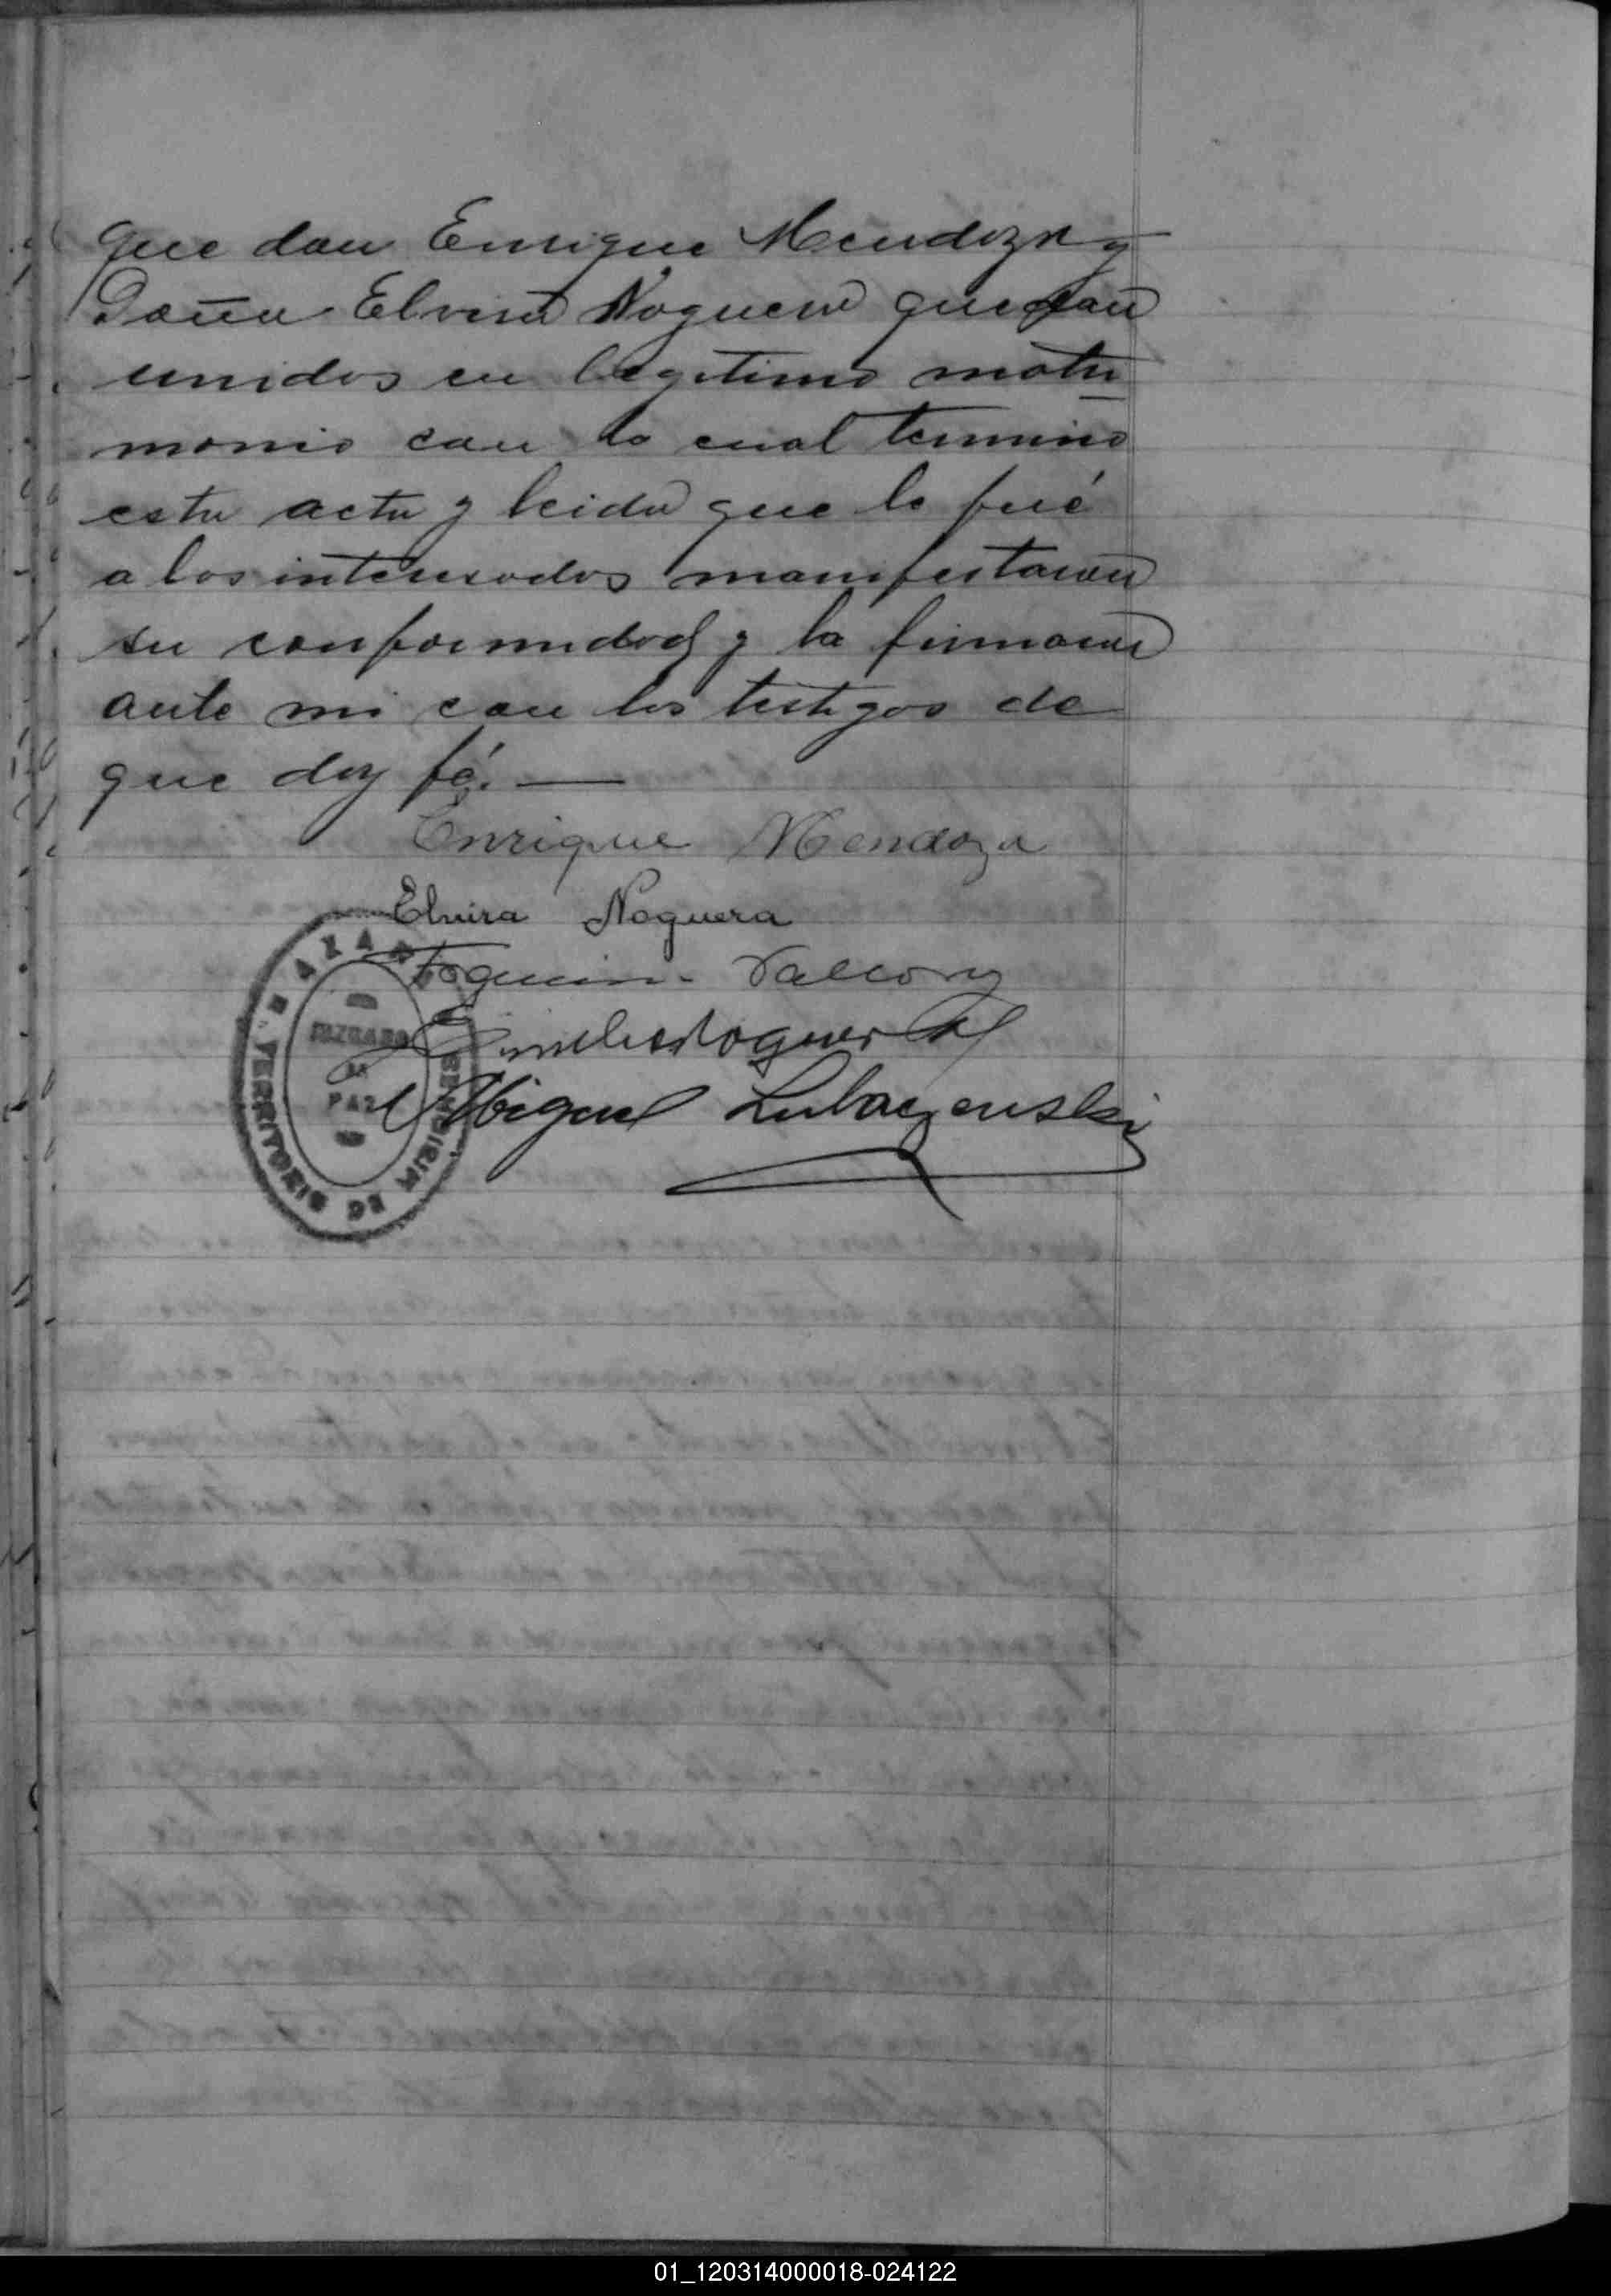 que don Enrique Mendoza y
Doña Elvira Noguera quedan
unidos en legitimo matri
monio con lo cual termino
esta acta y leida que le fué
a los interesados manifestaron
su conformidad y la firmaron
ante mi con los testigos de
que doy fé.
Enrique Mendoza
Elvira Noguera
Miguel
JUZGADO
DE
PAZ
TERRITORIO DE
01_120314000018-024122